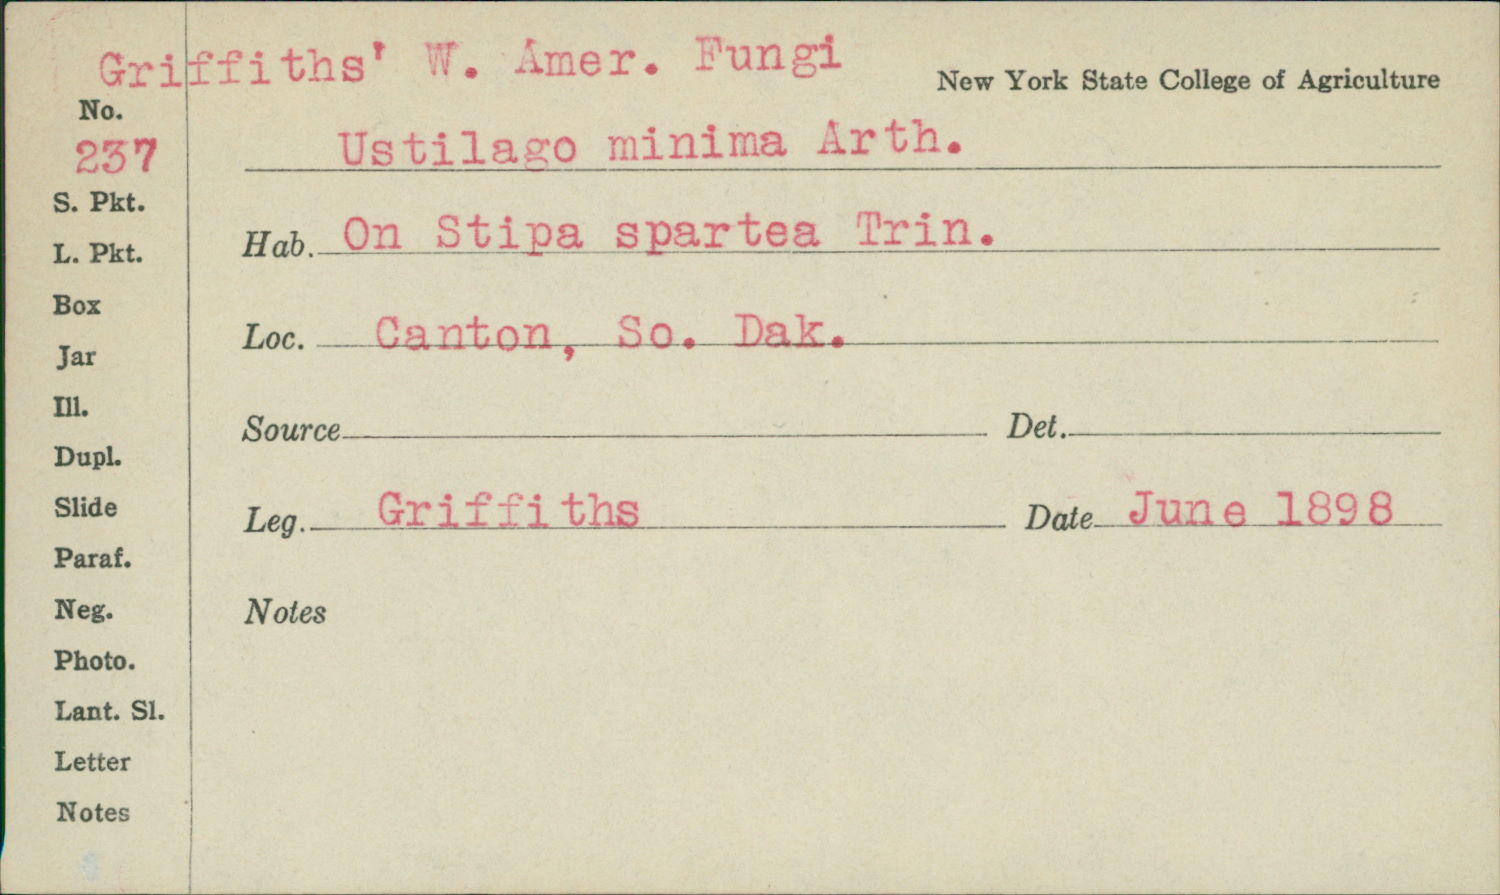 Griffiths' W. Amer. Fungi
New York State College of Agriculture
No.
237
Ustilago minima Arth.
S. Pkt.
L. Pkt.
Box
Jar
Ill.
Dupl.
Slide
Paraf.
Neg.
Photo.
Lant. Sl.
Letter
Notes
Hab. On Stipa spartea Trin.
Loc. Canton, So. Dak.
Source Det.
Leg. Griffiths Date June 1898
Notes